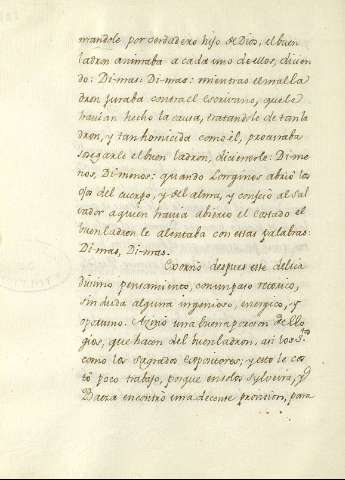 mandole por verdadero hijo de Dios, el buen
ladron animaba a cada uno de ellos, dicien
do: Di-mas: Di-mas: mientras el mal la
dron juraba contra el escrivano, que le
havian hecho la causa, tratandole de tan la
dron, y tan homicida como el, procuraba
sosegarle el buen ladron, diciendole: Di-me
nos, Di-menos: quando Longinos abrió los
ojos del cuerpo, y del alma, y confesó al Sal
vador a quien havia abierto el costado el
buen ladron le alentaba con estas palabras:
Di-mas, Di-mas.
Exornó despues este delica
disimo pensamiento, con un paso retorico,
sin duda alguna ingenioso, energico, y
oportuno. una buena porcion de Elo
gios, que hacen del buen ladron, asi los S.tos
como los Sagrados Expositores; y esto le cos
tó poco trabajo, porque en solos Sylveira, y
Baeza encontró una decente provision, para